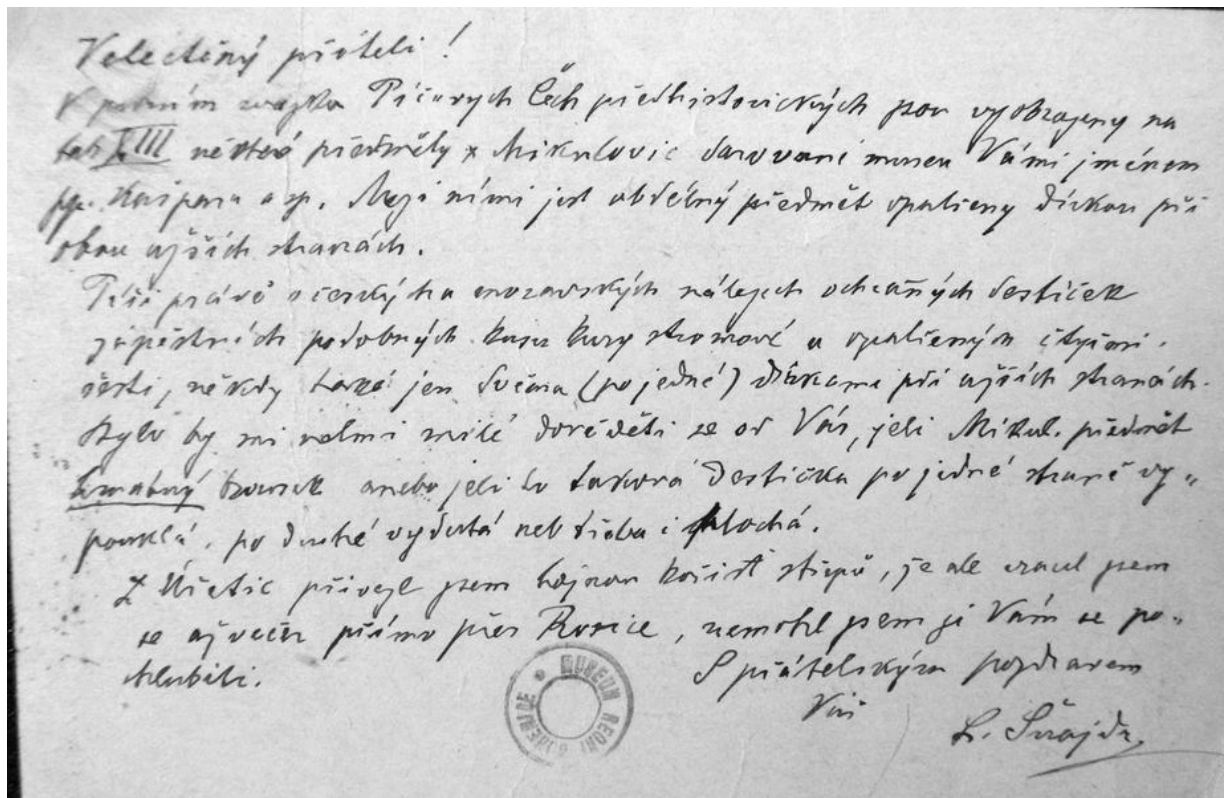 Velectěný příteli!
V prvním svazku Píčových Čech předhistorických jsou vyobrazeny na
tab XIII některé předměty z Mikulovic darované museu Vámi jménem
pp. Kašpara a sp. Mezi nimi jest obdélný předmět opatřený dírkou při
obou užších stranách.
Píši právě o českých a moravských nálezech ochranných destiček
zápěstních podobných kusu kury stromové a opatřených čtyřmi,
šesti, někdy také jen dvěma (po jedné) dírkami při užších stranách.
Bylo by mi velmi milé dověděti se od Vás, jeli Mikul. předmět
brousek anebo jeli to taková destička po jedné straně vy„
pouklá, po druhé vydutá neb třeba i plochá.
Z Únětic přivezl jsem hojnou kořist střepů, že ale vracel jsem
se až večer přímo přes Rosice, nemohl jsem ji Vám se po„
chlubiti.
S přátelským pozdravem
Váš
L. Šnajdr
MUSEUM REGNI BOHEMIAE